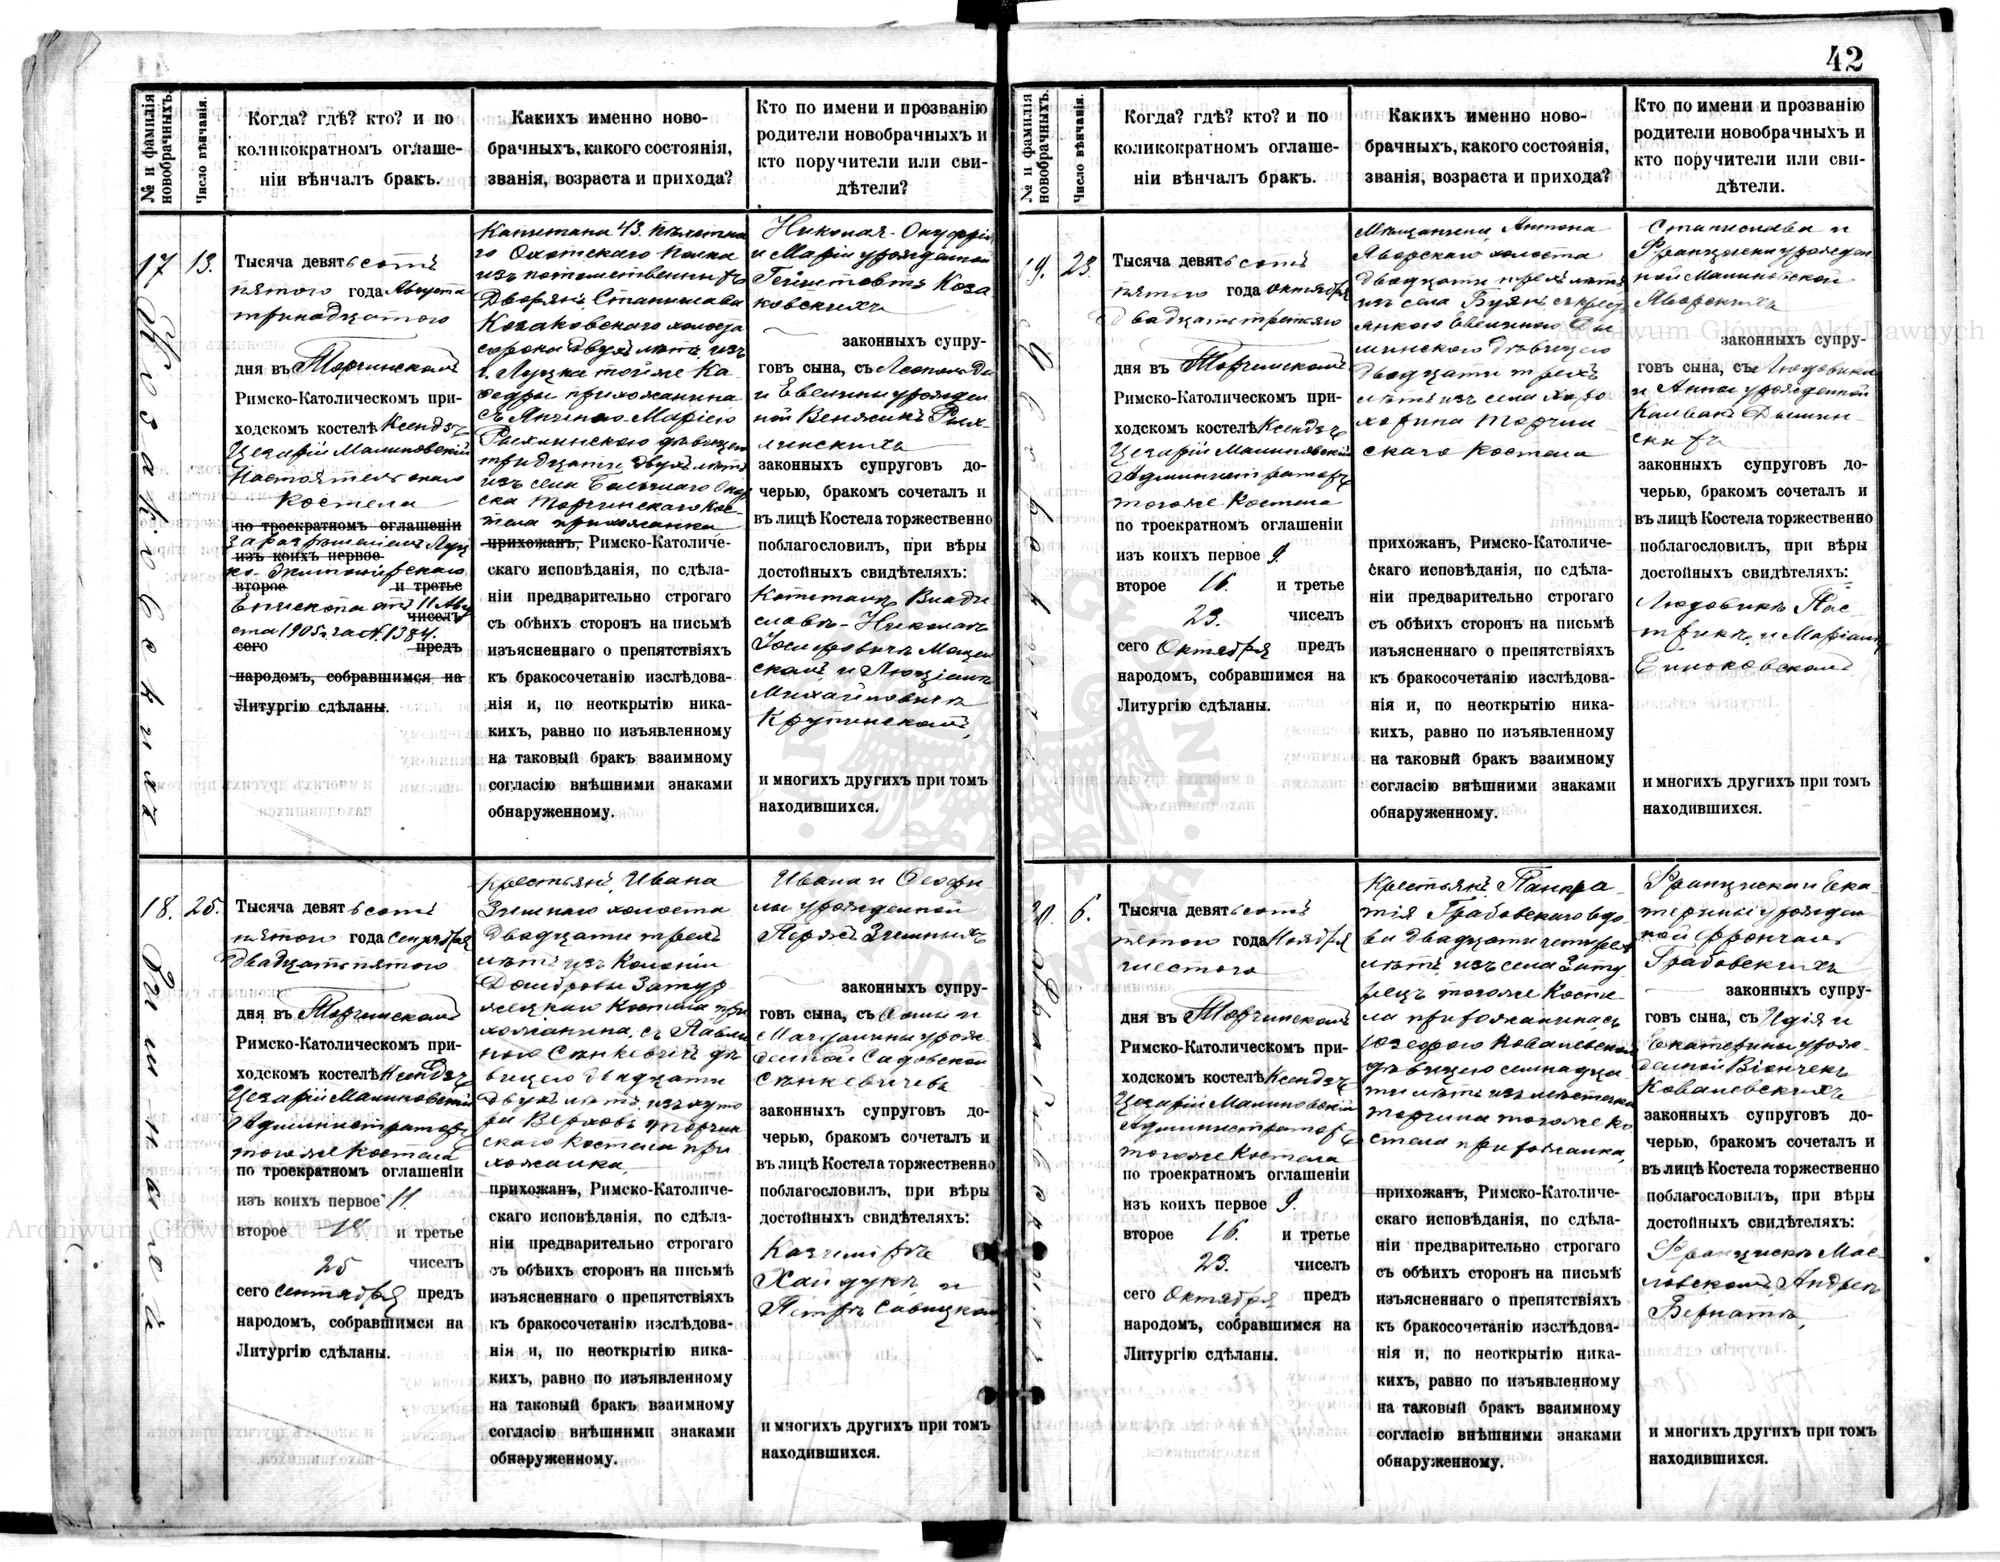 42
№ и фамилія новобрачныхъ.
Число вѣнчанія.
Когда? гдѣ? кто? и по
коликократномъ оглаше-
ніи вѣнчалъ бракъ.
Какихъ именно ново-
брачныхъ, какого состоянія,
званія, возраста и прихода?
Кто по имени и прозванію
родители новобрачныхъ и
кто поручители или сви-
дѣтели?
17
13.
Тысяча девятьсотъ
пятого года Августа
тринадцатого
дня въ Торчинскомъ
Римско-Католическомъ при-
ходскомъ костелѣ Ксендзъ
Цезарій Малиновскій
Костела
по троекратномъ оглашеніи
изъ коихъ первое
второе и третье
Епископа отъ 11 Авгу
чиселъ
ста 1905 г. за N. 1384.
сего предъ
народомъ, собравшимся на
Литургію сдѣланы.
Капитана 43. пѣхотна
го Охотского полка
изъ потомственныхъ
Дворянъ Станислава
Козаковского холоста
сорока двухъ лѣтъ изъ
г. Луцка тойже Ка
ѳедры прихожанина
тридцати двухъ лѣтъ
прихожанка
прихожан, Римско-Католиче-
скаго исповѣданія, по сдѣла-
ніи предварительно строгаго
съ обѣихъ сторонъ на письмѣ
изъясненнаго о препятствіяхъ
къ бракосочетанію изслѣдова-
нія и, по неоткрытію ника-
кихъ, равно по изъявленному
на таковый бракъ взаимному
согласію внѣшними знаками
обнаруженному.
и Маріи урожденной
Коза
ковскихъ
законныхъ супру-
говъ сына, съ Леопольда
и Евелины урожден
ной
линскихъ
законныхъ супруговъ до-
черью, бракомъ сочеталъ и
въ лицѣ Костела торжественно
поблагословил, при вѣры
достойныхъ свидѣтеляхъ:
Капитанъ Влади
славъ-Николаъ
Михайловичъ
и многихъ другихъ при томъ
находившихся.
18.
25.
Тысяча девятьсотъ
пятого года Сентября
двадцатьпятого
дня въ Торчинскомъ
Римско-Католическомъ при-
ходскомъ костелѣ Ксендзъ
Цезарій Малиновскій
Администраторъ
тогоже Костела
по троекратномъ оглашеніи
изъ коихъ первое 11.
второе 18. и третье
25 чиселъ
сего Сентября предъ
народомъ, собравшимся на
Литургію сдѣланы.
Крестьянъ, Ивана
Зимнаго холоста
двадцати трехъ
лѣтъ изъ Колоніи
Домбровы Затур
Костела при
хожанина, съ Павли
ного Сѣнкевичъ дѣ
вицею двадцати
двухъ лѣтъ, изъ хуто
ра Верховъ Торчин
ского Костела при
хожанка,
прихожан, Римско-Католиче-
скаго исповѣданія, по сдѣла-
ніи предварительно строгаго
съ обѣихъ сторонъ на письмѣ
изъясненнаго о препятствіяхъ
къ бракосочетанію изслѣдова-
нія и, по неоткрытію ника-
кихъ, равно по изъявленному
на таковый бракъ взаимному
согласію внѣшними знаками
обнаруженному.
Ивана и Ѳеофи
лы урожденной
Зимныхъ
законныхъ супру-
говъ сына, съ
Магдалины урож
денной Садовской
Сѣнкевичевъ
законныхъ супруговъ до-
черью, бракомъ сочеталъ и
въ лицѣ Костела торжественно
поблагословил, при вѣры
достойныхъ свидѣтеляхъ:
Казиміръ
Хайдукъ и
Петръ Савицкій
и многихъ другихъ при томъ
находившихся.
№ и фамилія новобрачныхъ.
Число вѣнчанія.
Когда? гдѣ? кто? и по
коликократномъ оглаше-
ніи вѣнчалъ бракъ.
Какихъ именно ново-
брачныхъ, какого состоянія,
званія, возраста и прихода?
Кто по имени и прозванію
родители новобрачныхъ и
кто поручители или сви-
дѣтели.
19.
23.
Тысяча девятьсотъ
пятого года Октября
двадцатьтретьяго
дня въ Торчинскомъ
Римско-Католическомъ при-
ходскомъ костелѣ Ксендзъ
Цезарій Малиновскій
Администраторъ
тогоже Костела
по троекратномъ оглашеніи
изъ коихъ первое 9.
второе 16. и третье
23. чиселъ
сего Октября предъ
народомъ, собравшимся на
Литургію сдѣланы.
Мѣщанина, Антона
Яворскаго холоста
двадцати трехъ лѣтъ
изъ села Буянъ съ
дѣвицею
двадцати трехъ
лѣтъ изъ села Хоро
хорина Торчин
скаго Костела
прихожан, Римско-Католиче-
скаго исповѣданія, по сдѣла-
ніи предварительно строгаго
съ обѣихъ сторонъ на письмѣ
изъясненнаго о препятствіяхъ
къ бракосочетанію изслѣдова-
нія и, по неоткрытію ника-
кихъ, равно по изъявленному
на таковый бракъ взаимному
согласію внѣшними знаками
обнаруженному.
Станислава и
Францишки урожден
ной Малиновской
Яворскихъ
законныхъ супру-
говъ сына, съ Людовика
и Анны урожденной
скихъ
законныхъ супруговъ до-
черью, бракомъ сочеталъ и
въ лицѣ Костела торжественно
поблагословил, при вѣры
достойныхъ свидѣтеляхъ:
Людовикъ Пас
трикъ, и
и многихъ другихъ при томъ
находившихся.
20.
6.
Тысяча девятьсотъ
пятого года Ноября
шестого
дня въ Торчинскомъ
Римско-Католическомъ при-
ходскомъ костелѣ Ксендзъ
Цезарій Малиновскій
Администраторъ
тогоже Костела
по троекратномъ оглашеніи
изъ коихъ первое 9.
второе 16. и третье
23. чиселъ
сего Октября предъ
народомъ, собравшимся на
Литургію сдѣланы.
Крестьянъ, Панкра
тія Грабовскаго вдо
ва двадцати четырехъ
лѣтъ изъ села Зату
рецъ тогоже Косте
ла прихожанина, съ
Юзефою Ковалевской
дѣвицею семнадца
ти лѣтъ изъ мѣстечка
Торчина тогоже Ко
стела прихожанка,
прихожан, Римско-Католиче-
скаго исповѣданія, по сдѣла-
ніи предварительно строгаго
съ обѣихъ сторонъ на письмѣ
изъясненнаго о препятствіяхъ
къ бракосочетанію изслѣдова-
нія и, по неоткрытію ника-
кихъ, равно по изъявленному
на таковый бракъ взаимному
согласію внѣшними знаками
обнаруженному.
Франциска и Ека-
терины урожден
ной
Грабовскихъ
законныхъ супру-
говъ сына, съ
Екатерины урож
денной
Ковалевскихъ
законныхъ супруговъ до-
черью, бракомъ сочеталъ и
въ лицѣ Костела торжественно
поблагословилъ, при вѣры
достойныхъ свидѣтеляхъ:
Францискъ Мас-
ловскій, Андрей
Бернатъ,
и многихъ другихъ при томъ
находившихся.
Archiwum Główne Akt Dawnych
Archiwum Główne Akt Dawnych